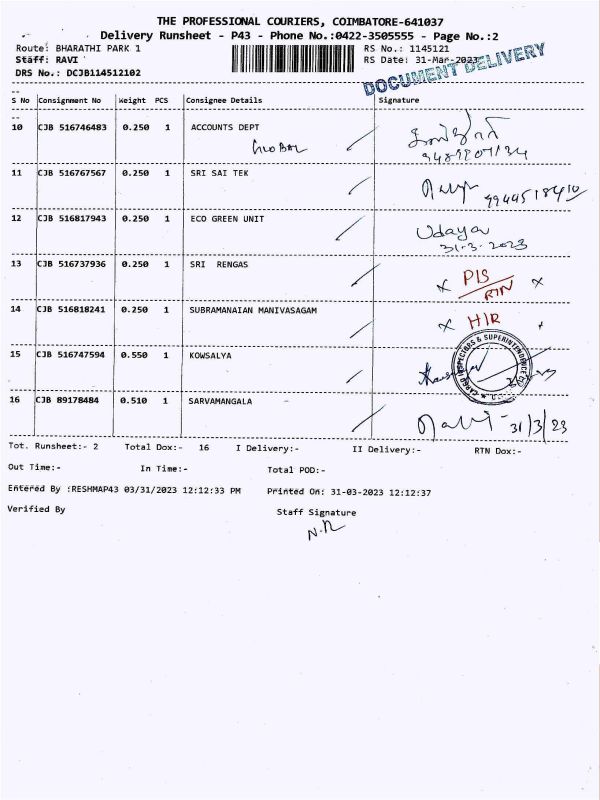 THE PROFESSIONAL COURIERS, COIMBATORE-641037
Delivery Runsheet - P43 - Phone No.:0422-3505555 - Page No.:2
Route: BHARATHI PARK 1 RS No.: 1145121
Staff: RAVI RS Date: 31-Mar-2023
DRS No.: DCJB114512102
DOCUMENT DELIVERY
S No Consignment No Weight PCS Consignee Details Signature
10 CJB 516746483 0.250 1 ACCOUNTS DEPT
GLOBAL
11 CJB 516767567 0.250 1 SRI SAI TEK
12 CJB 516817943 0.250 1 ECO GREEN UNIT Udaya
31-3-2023
13 CJB 516737936 0.250 1 SRI RENGAS x PIS x
RTN
14 CJB 516818241 0.250 1 SUBRAMANAIAN MANIVASAGAM x HIR
15 CJB 516747594 0.550 1 KOWSALYA
16 CJB 89178484 0.510 1 SARVAMANGALA 31/3/23
Tot. Runsheet:- 2 Total Dox:- 16 I Delivery:- II Delivery:- RTN Dox:-
Out Time:- In Time:- Total POD:-
Entered By :RESHMAP43 03/31/2023 12:12:33 PM Printed On: 31-03-2023 12:12:37
Verified By Staff Signature
N.R